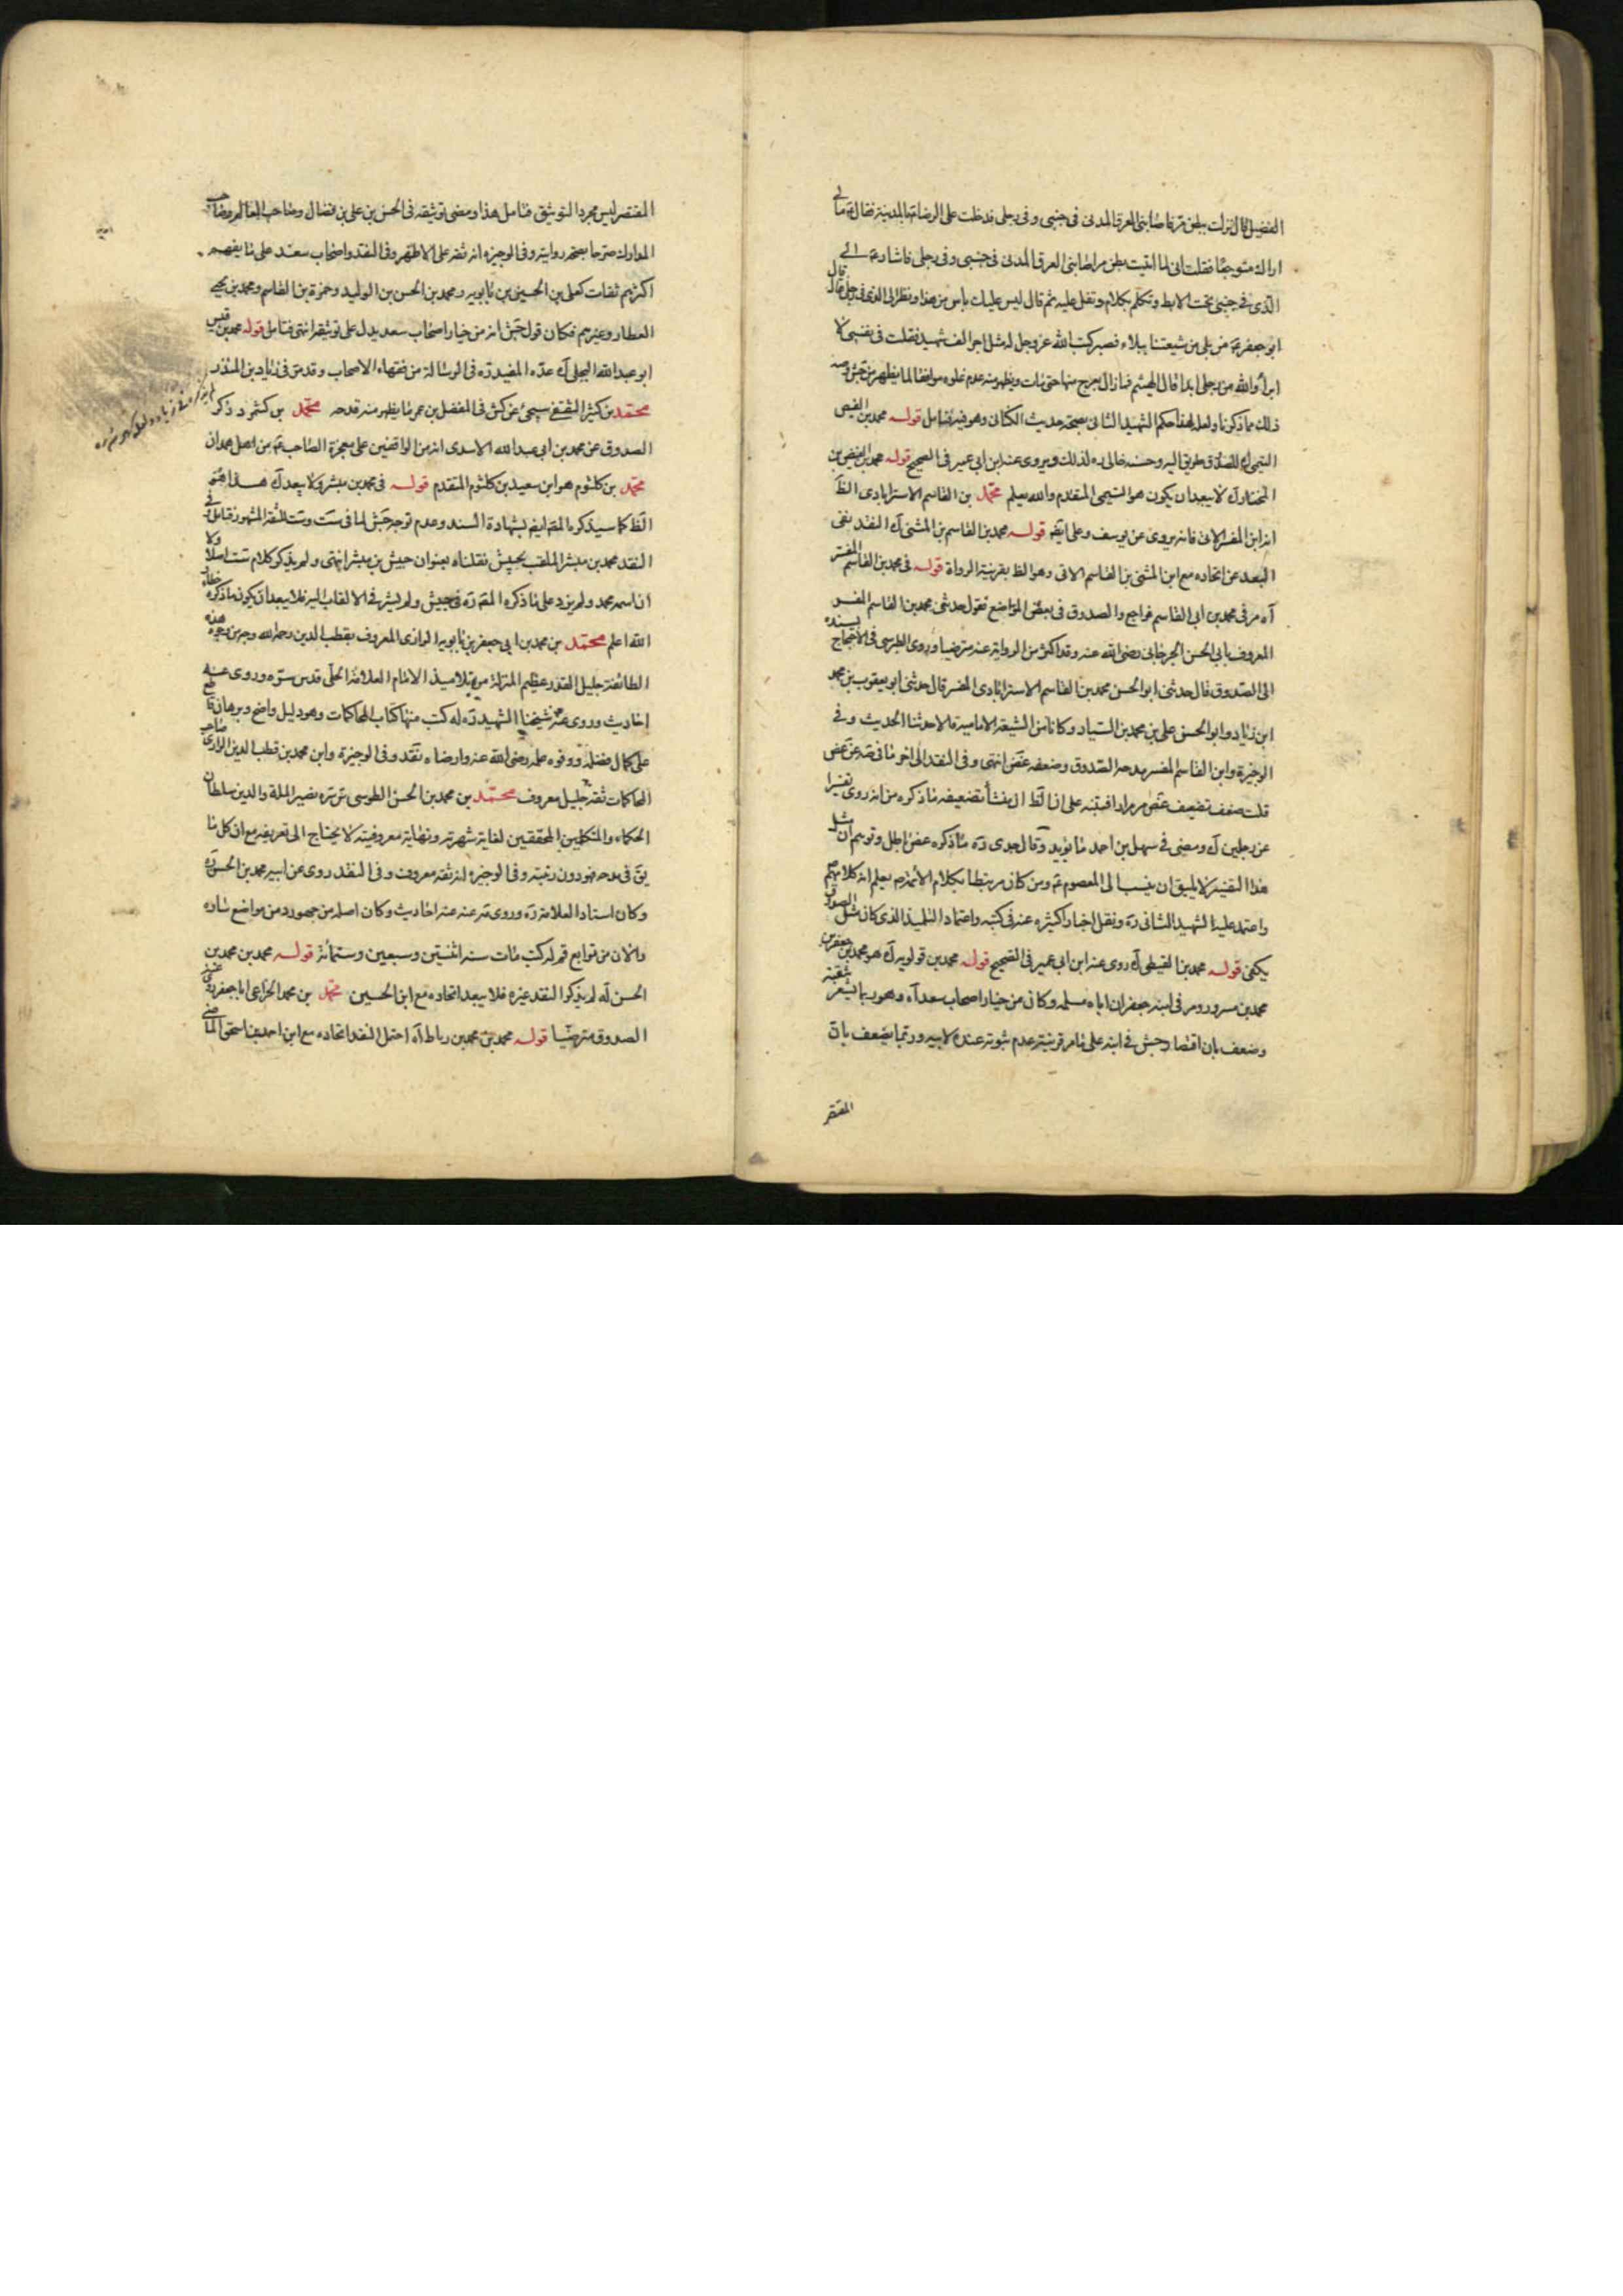 الفضيل قال نزلت ببطن مر فاصابنى العرق المدنى فى جنبى وفى رجلى فدخلت على الرضا ع بالمدينة فقال ع مالى
اراك متوجعا فقلت انى لما اتيت بطن مر اصابنى العرق المدنى فى جنبى وفى رجلى فاشار ع الى
الذى فى جنبى تحت الابط وتكلم بكلام وتفل عليه ثم قال ليس عليك باس من هذا ونظر الى الذى فى رجلى فقال قال
ابو جعفر ع من بلى من شيعتنا ببلاء فصبر كتب الله عز وجل له مثل اجر الف شهيد فقلت فى نفسى لا
ابرأ والله من رجلى ابدا قال الهيثم فما زال يعرج منها حتى مات ويظهر منه عدم غلوه موافقا لما يظهر من جش ومنه
ذلك مما ذكرنا ولعله لهذا حكم الشهيد الثانى بصحة حديث الكنانى وهو فيه فتامل قوله محمد بن الفيض
التيمى اه للصدوق طريق اليه وحسنه خالى ره لذلك ويروى عنه ابن ابى عمير فى الصحيح قوله محمد بن الفيض بن
المختار اه لا يبعد ان يكون هو التيمى المتقدم والله يعلم محمد بن القاسم الاسترابادى الظ
انه ابن المفسر الاتى فانه يروى عن يوسف وعلى ايضا قوله محمد بن القاسم بن المثنى اه النقد نفى
البعد عن اتحاده مع ابن المثنى بن القاسم الاتى وهو الظ بقرينة الرواة قوله فى محمد بن القاسم المفسر
اه مر فى محمد بن ابى القاسم فراجع والصدوق فى بعض المواضع يقول حدثنى محمد بن القاسم المفسر
المعروف بابى الحسن الجرجانى رضى الله عنه وقد اكثر من الرواية عنه مترضيا وروى الطبرسى فى الاحتجاج بسنده
الى الصدوق قال حدثنى ابو الحسن محمد بن القاسم الاسترابادى المفسر قال حدثنى ابو يعقوب يوسف بن محمد
ابن زياد وابو الحسن على بن محمد بن السيار وكانا من الشيعة الامامية قالا حدثنا الحديث وفى
الوجيزة وابن القاسم المفسر مدحه الصدوق وضعفه غض انتهى وفى النقد الى اخر ما فى صه عن غض
قلت ضعف تضعيف غض مر مرارا فتنبه على ان الظ ان منشأ تضعيفه ما ذكره من انه روى تفسيرا
عن رجلين اه ومضى فى سهل بن احمد ما يؤيد وقال جدى ره ما ذكره غض باطل وتوهم ان مثل
هذا التفسير لا يليق ان ينسب الى المعصوم ع ومن كان مرتبطا بكلام الائمة ع يعلم انه كلامهم
واعتمد عليه الشهيد الثانى ره ونقل اخبارا كثيرة عنه فى كتبه واعتماد التلميذ الذى كان مثل الصدوق
يكفى قوله محمد بن القبطى اه روى عنه ابن ابى عمير فى الصحيح قوله محمد بن قولويه اه هو محمد بن جعفر بن
محمد بن مسرور ومر فى ابنه جعفر ان اباه مسلمه وكان من خيار اصحاب سعد اه وهو ربما يشعر بثقته
وضعف بان اقتصار جش فى ابنه على ما مر قرينة عدم ثبوته عنده لابيه وربما يضعف بان
المقتصر
المقتصر ليس مجرد التوثيق فتامل هذا ومضى توثيقه فى الحسن بن على بن فضال وصاحب المعالم وصاحب
المدارك صرحا بصحة روايته وفى الوجيزه انه ثقه على الاظهر وفى النقد واصحاب سعد على ما يفهم
اكثرهم ثقات كعلى بن الحسين بن بابويه ومحمد بن الحسن بن الوليد وحمزة بن القاسم ومحمد بن يحيى
العطار وغيرهم فكان قول جش انه من خيار اصحاب سعد يدل على توثيقه انتهى فتامل قوله محمد بن قيس
ابو عبد الله البجلى اه عده المفيد ره فى الرسالة من فقهاء الاصحاب وقد مر فى زياد بن المنذر
محمد بن كثير الثقفى سيجئ عن كش فى المفضل بن عمر ما يظهر منه قدحه محمد بن كشمرد ذكر
الصدوق عن محمد بن ابى عبد الله الاسدى انه من الواقفين على معجزة الصاحب ع من اهل همدان
محمد بن كلثوم هو ابن سعيد بن كلثوم المتقدم قوله فى محمد بن مبشر ولا يبعد اه هذا هو
الظ كما سيذكره المص ايضا بشهادة السند وعدم توجه جش لما فى ست وست للثقه المشهور فتامل فى
النقد محمد بن مبشر الملقب بحبيش نقلناه بعنوان حبيش بن مبشر انتهى ولم يذكر كلام ست اصلا ولا
ان اسمه محمد ولم يزد على ما ذكره المص ره فى حبيش ولم يشر فى الالقاب اليه فلا يبعد ان يكون ما ذكره خطأ
الله اعلم محمد بن محمد بن ابى جعفر بن بابويه الرازى المعروف بقطب الدين رحمه الله وجه من وجوه هذه
الطائفة جليل القدر عظيم المنزلة من تلاميذ الامام العلامة الحلى قدس سره وروى عنه
احاديث وروى عنه شيخنا الشهيد ره له كتب منها كتاب المحاكمات وهو دليل واضح وبرهان قاطع
على كمال فضله ووفور علمه رضى الله عنه وارضاه نقد وفى الوجيزة وابن محمد بن قطب الدين الرازى صاحب
المحاكمات ثقه جليل معروف محمد بن محمد بن الحسن الطوسى قدس سره نصير الملة والدين سلطان
الحكماء والمتكلمين المحققين لغاية شهرته ونهاية معروفيته لا يحتاج الى تعريفه مع ان كل ما
يق فى مدحه فهو دون رتبته وفى الوجيزه انه ثقه معروف وفى النقد روى عن ابيه محمد بن الحسن ره
وكان استاد العلامة ره وروى عنه احاديث وكان اصله من جهرود من مواضع ساوه
والان من توابع قم له كتب مات سنه اثنتين وسبعين وستمائة قوله محمد بن محمد بن
الحسن اه لم يذكر النقد غيره فلا يبعد اتحاده مع ابن الحسين محمد بن محمد الخزاعى ابا جعفر روى عنه
الصدوق مترضيا قوله محمد بن محمد بن رباط اه احتمل النقد اتحاده مع ابن احمد بن اسحق الماضى